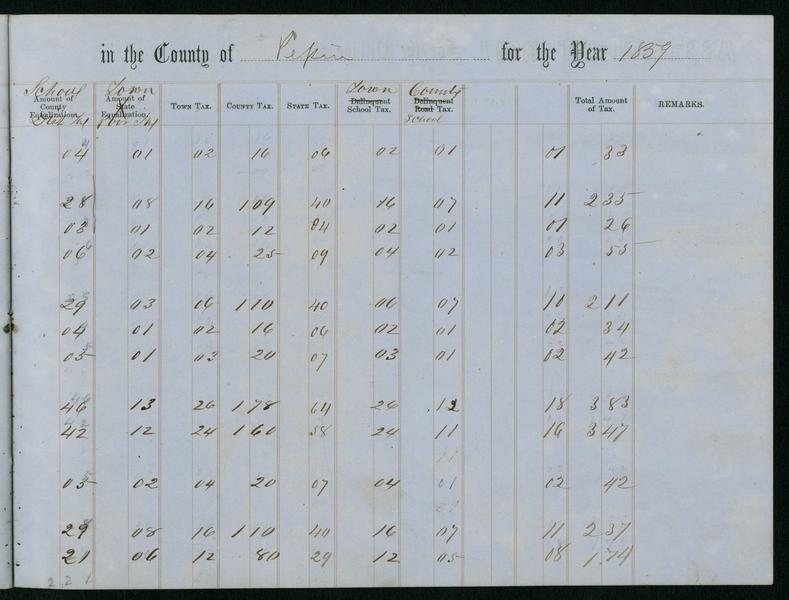 in the County of Pepin for the Year 1859
School Town Town County
Amount of County Equalization. Amount of State Equalization. Town Tax. County Tax. State Tax. Delinquent School Tax. Delinquent Road Tax. Total Amount of Tax. REMARKS.
School
04 01 02 16 06 02 01 01 33
28 08 16 109 40 16 07 11 235
03 01 02 12 04 02 01 01 26
06 02 04 25 09 04 02 03 55
29 03 06 110 40 06 07 10 211
04 01 02 16 06 02 01 02 34
05 01 03 20 07 03 01 02 42
46 13 26 178 64 26 12 18 383
42 12 24 160 58 24 11 16 347
11
05 02 04 20 07 04 01 02 42
29 08 16 110 40 16 07 11 237
21 06 12 80 29 12 05 08 174
2 2 1